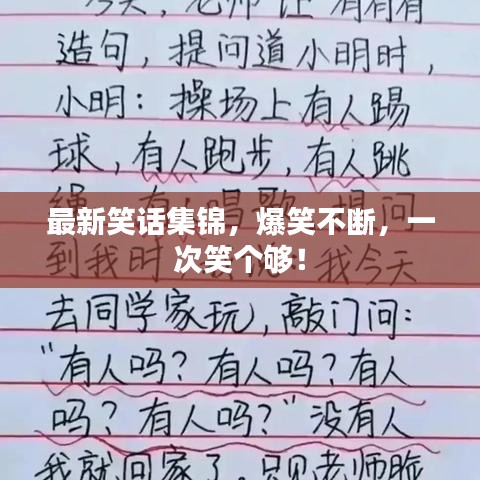 今天，老师让 有有有
造句，提问道小明时，
小明：操场上有人踢
球，有人跑步，有人跳
最新笑话集锦，爆笑不断，一
次笑个够！
到我时
我今天
去同学家玩，敲门问：
“有人吗？有人吗？有人
吗？有人吗？”没有人
我就回家了。只见老师脸